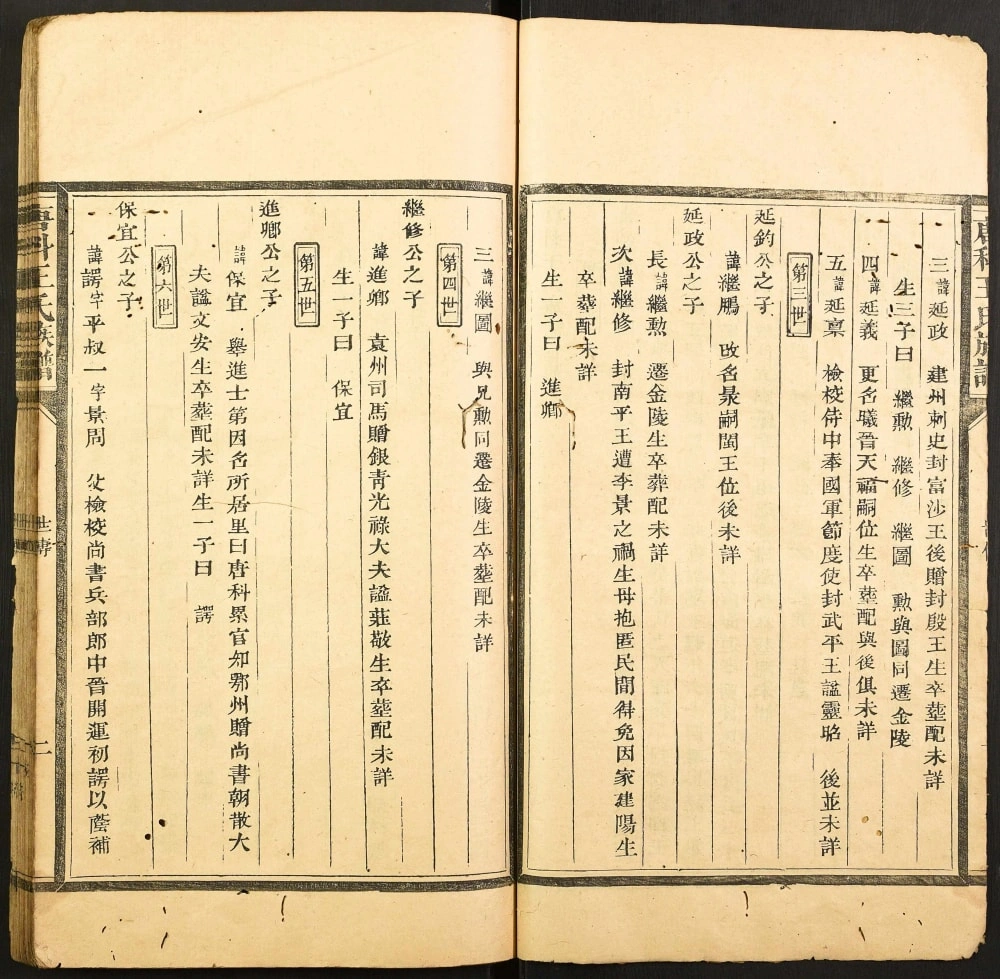 三諱延政　建州刺史封富沙王後贈封殷王生卒塟配未詳
生三子曰　繼勲　繼修　繼圖　勲與圖同遷金陵
四諱延義　更名曦晉天福嗣位生卒塟配與後俱未詳
五諱延禀　檢校侍中奉國軍節度使封武平王諡靈昭　後並未詳
第三世
延鈞公之子
諱繼鵬　改名昶嗣閩王位後未詳
延政公之子
長諱繼勲　遷金陵生卒葬配未詳
次諱繼修　封南平王遭李景之禍生母抱匿民間得免因家建陽生
卒塟配未詳
生一子曰　進鄉
三諱繼圖　與兄勲同遷金陵生卒塟配未詳
第四世
繼修公之子
諱進鄉　袁州司馬贈銀靑光祿大夫諡莊敬生卒塟配未詳
生一子曰　保宜
第五世
進鄉公之子
諱保宜　舉進士第因名所居里曰唐科累官知鄂州贈尚書朝散大
夫諡文安生卒塟配未詳生一子曰　諤
第六世
保宜公之子
諱諤字平叔一字景周　仕檢校尚書兵部郎中晉開運初諤以蔭補
唐科王氏族譜
世傳
二